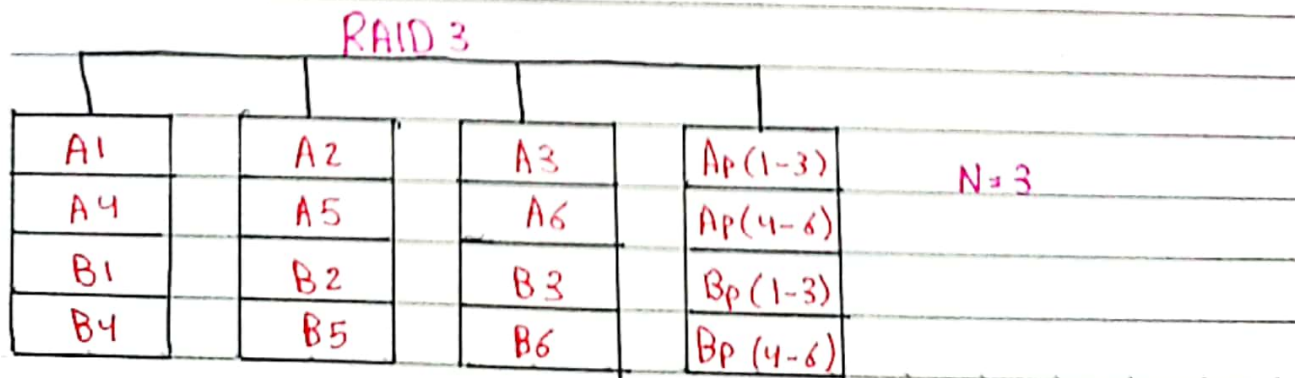 RAID 3
A1 A2 A3 Ap(1-3)
N=3
A4 A5 A6 Ap(4-6)
B1 B2 B3 Bp(1-3)
B4 B5 B6 Bp(4-6)